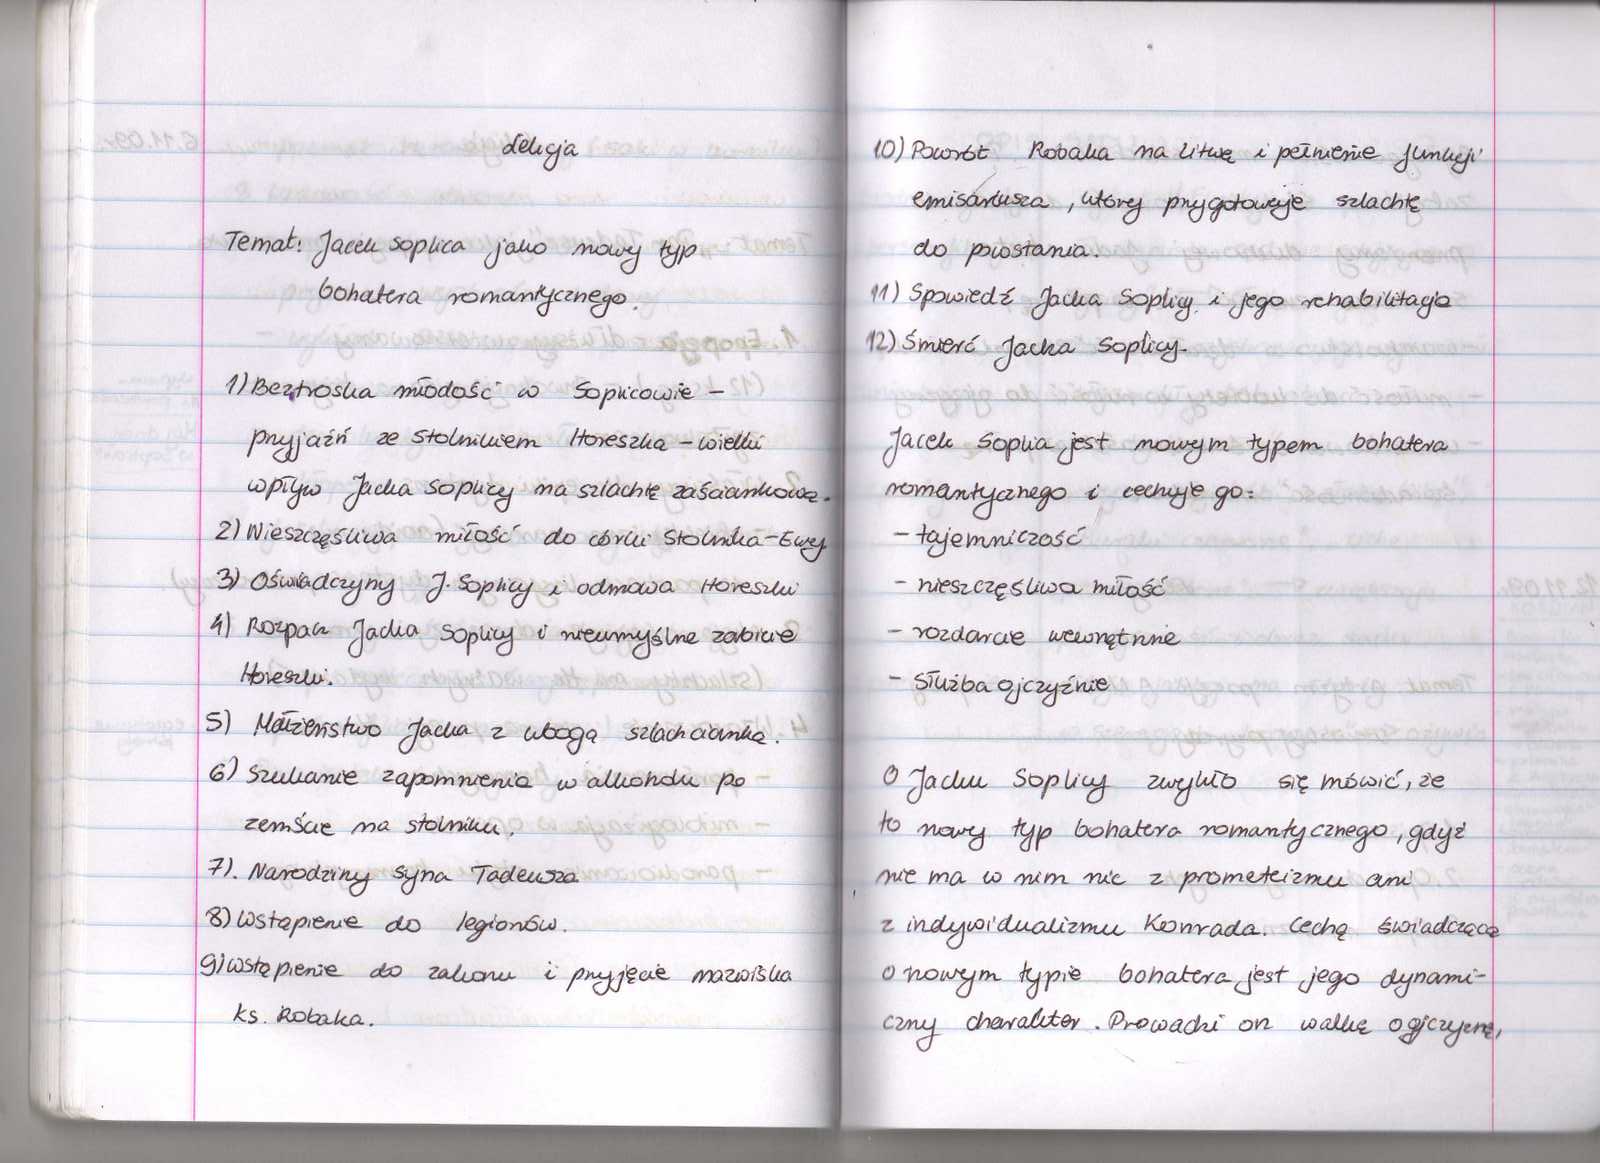 Lekcja
Temat: Jacek Soplica jako nowy typ
bohatera romantycznego.
1) Beztroska młodość w Soplicowie –
przyjaźń ze Stolnikiem Horeszka – wielki
wpływ Jacka Soplicy na szlachtę zaściankową.
2) Nieszczęśliwa miłość do córki Stolnika – Ewy
3) Oświadczyny J. Soplicy i odmowa Horeszki
4) Rozpacz Jacka Soplicy i nieumyślne zabicie
Horeszki.
5) Małżeństwo Jacka z ubogą szlachcianką.
6) Szukanie zapomnienia w alkoholu po
zemście na stolniku.
7). Narodziny syna Tadeusza
8) Wstąpienie do legionów.
9) Wstąpienie do zakonu i przyjęcie nazwiska
ks. Robaka.
10) Powrót Robaka na Litwę i pełnienie funkcji
emisariusza, który przygotowuje szlachtę
do powstania.
11) Spowiedź Jacka Soplicy i jego rehabilitacja
12) Śmierć Jacka Soplicy.
Jacek Soplia jest nowym typem bohatera
romantycznego i cechuje go:
– tajemniczość
– nieszczęśliwa miłość
– rozdarcie wewnętrzne
– służba ojczyźnie
O Jacku Soplicy zwykło się mówić, że
to nowy typ bohatera romantycznego, gdyż
nie ma w nim nic z prometeizmu ani
z indywidualizmu Konrada. Cechą świadczącą
o nowym typie bohatera jest jego dynami-
czny charakter. Prowadzi on walkę o ojczyznę,